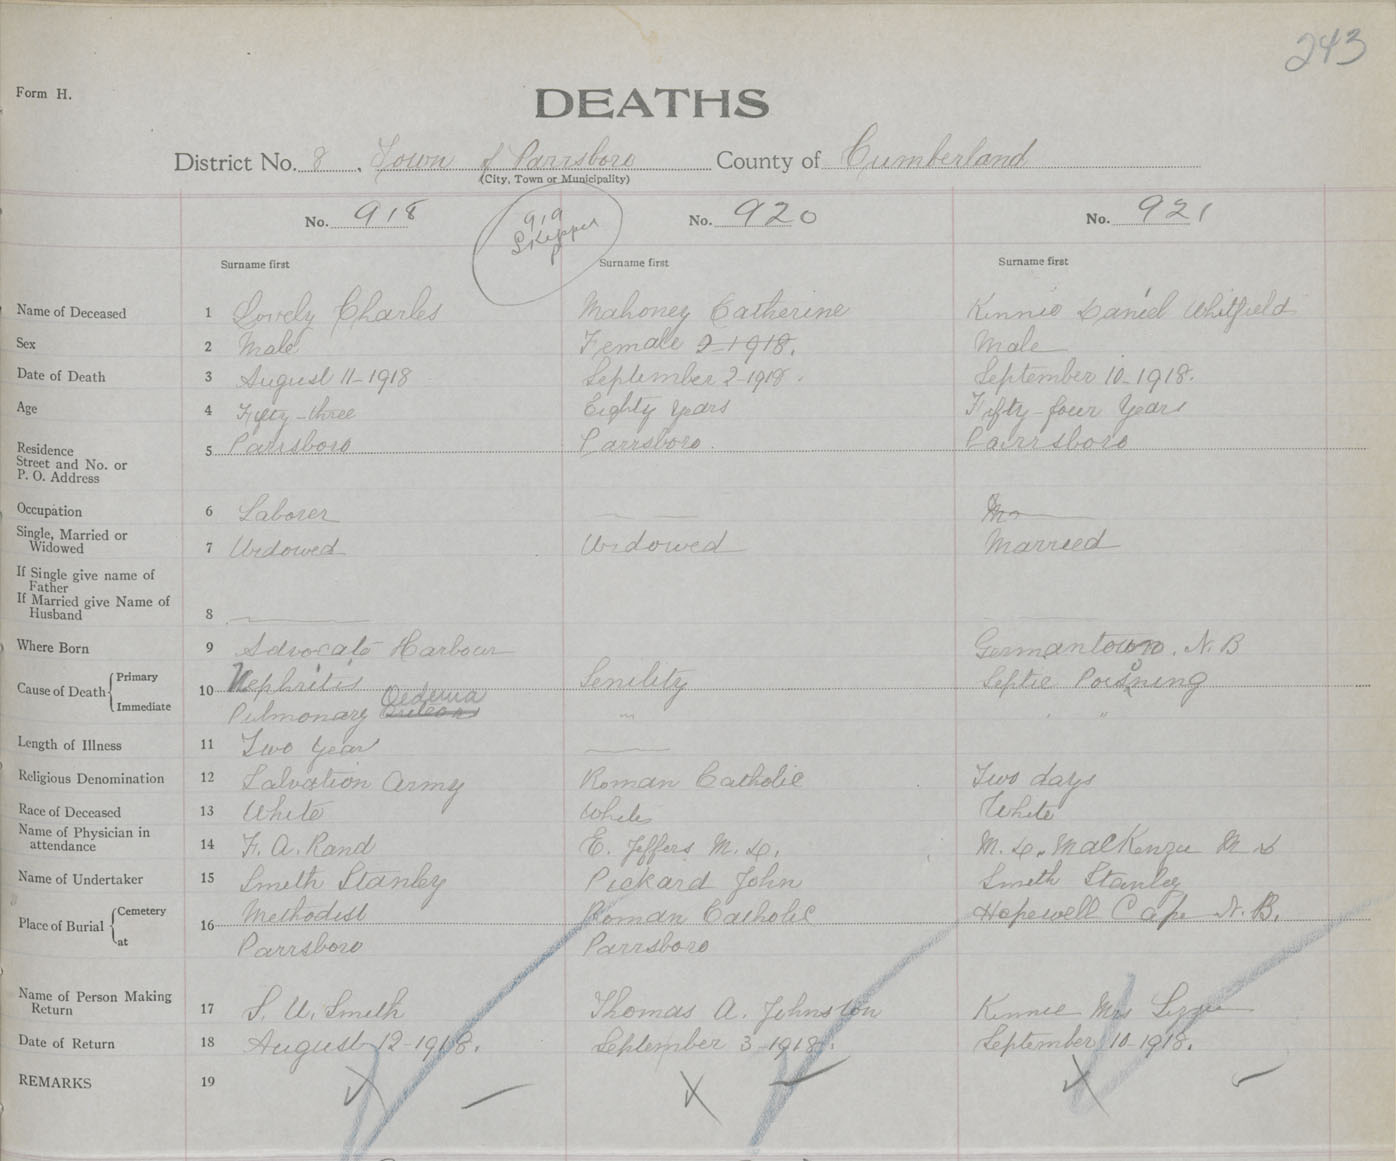 243
Form H.
DEATHS
District No. 8, Town of Parrsboro County of Cumberland
(City, Town or Municipality)
No. 918 919 Skipped No. 920 No. 921
Surname first Surname first Surname first
Name of Deceased 1 Lovely Charles Mahoney Catherine Kinnie Daniel Whitfield
Sex 2 Male Female 2-1918. Male
Date of Death 3 August 11-1918 September 2-1918. September 10-1918.
Age 4 Fifty-three Eighty Years Fifty-four Years
Residence Street and No. or P. O. Address 5 Parrsboro Parrsboro. Parrsboro
Occupation 6 Laborer
Single, Married or Widowed 7 Widowed Widowed Married
If Single give name of Father
If Married give Name of Husband 8
Where Born 9 Advocate Harbour Germantown. N.B
Cause of Death Primary 10 Nephritis Senility Septic Poisoning
Immediate Pulmonary Oedema " " "
Length of Illness 11 Two Year
Religious Denomination 12 Salvation Army Roman Catholic Two days
Race of Deceased 13 White White White
Name of Physician in attendance 14 F. A. Rand E. Jeffers M.D. M. D. MacKenzie M D
Name of Undertaker 15 Smith Stanley Pickard John Smith Stanley
Place of Burial Cemetery 16 Methodist Roman Catholic Hopewell Cape N.B.
at Parrsboro Parrsboro
Name of Person Making Return 17 S. U. Smith Thomas A. Johnston Kinnie Mrs Lizzie
Date of Return 18 August 12-1918. September 3-1918. September 10-1918.
REMARKS 19